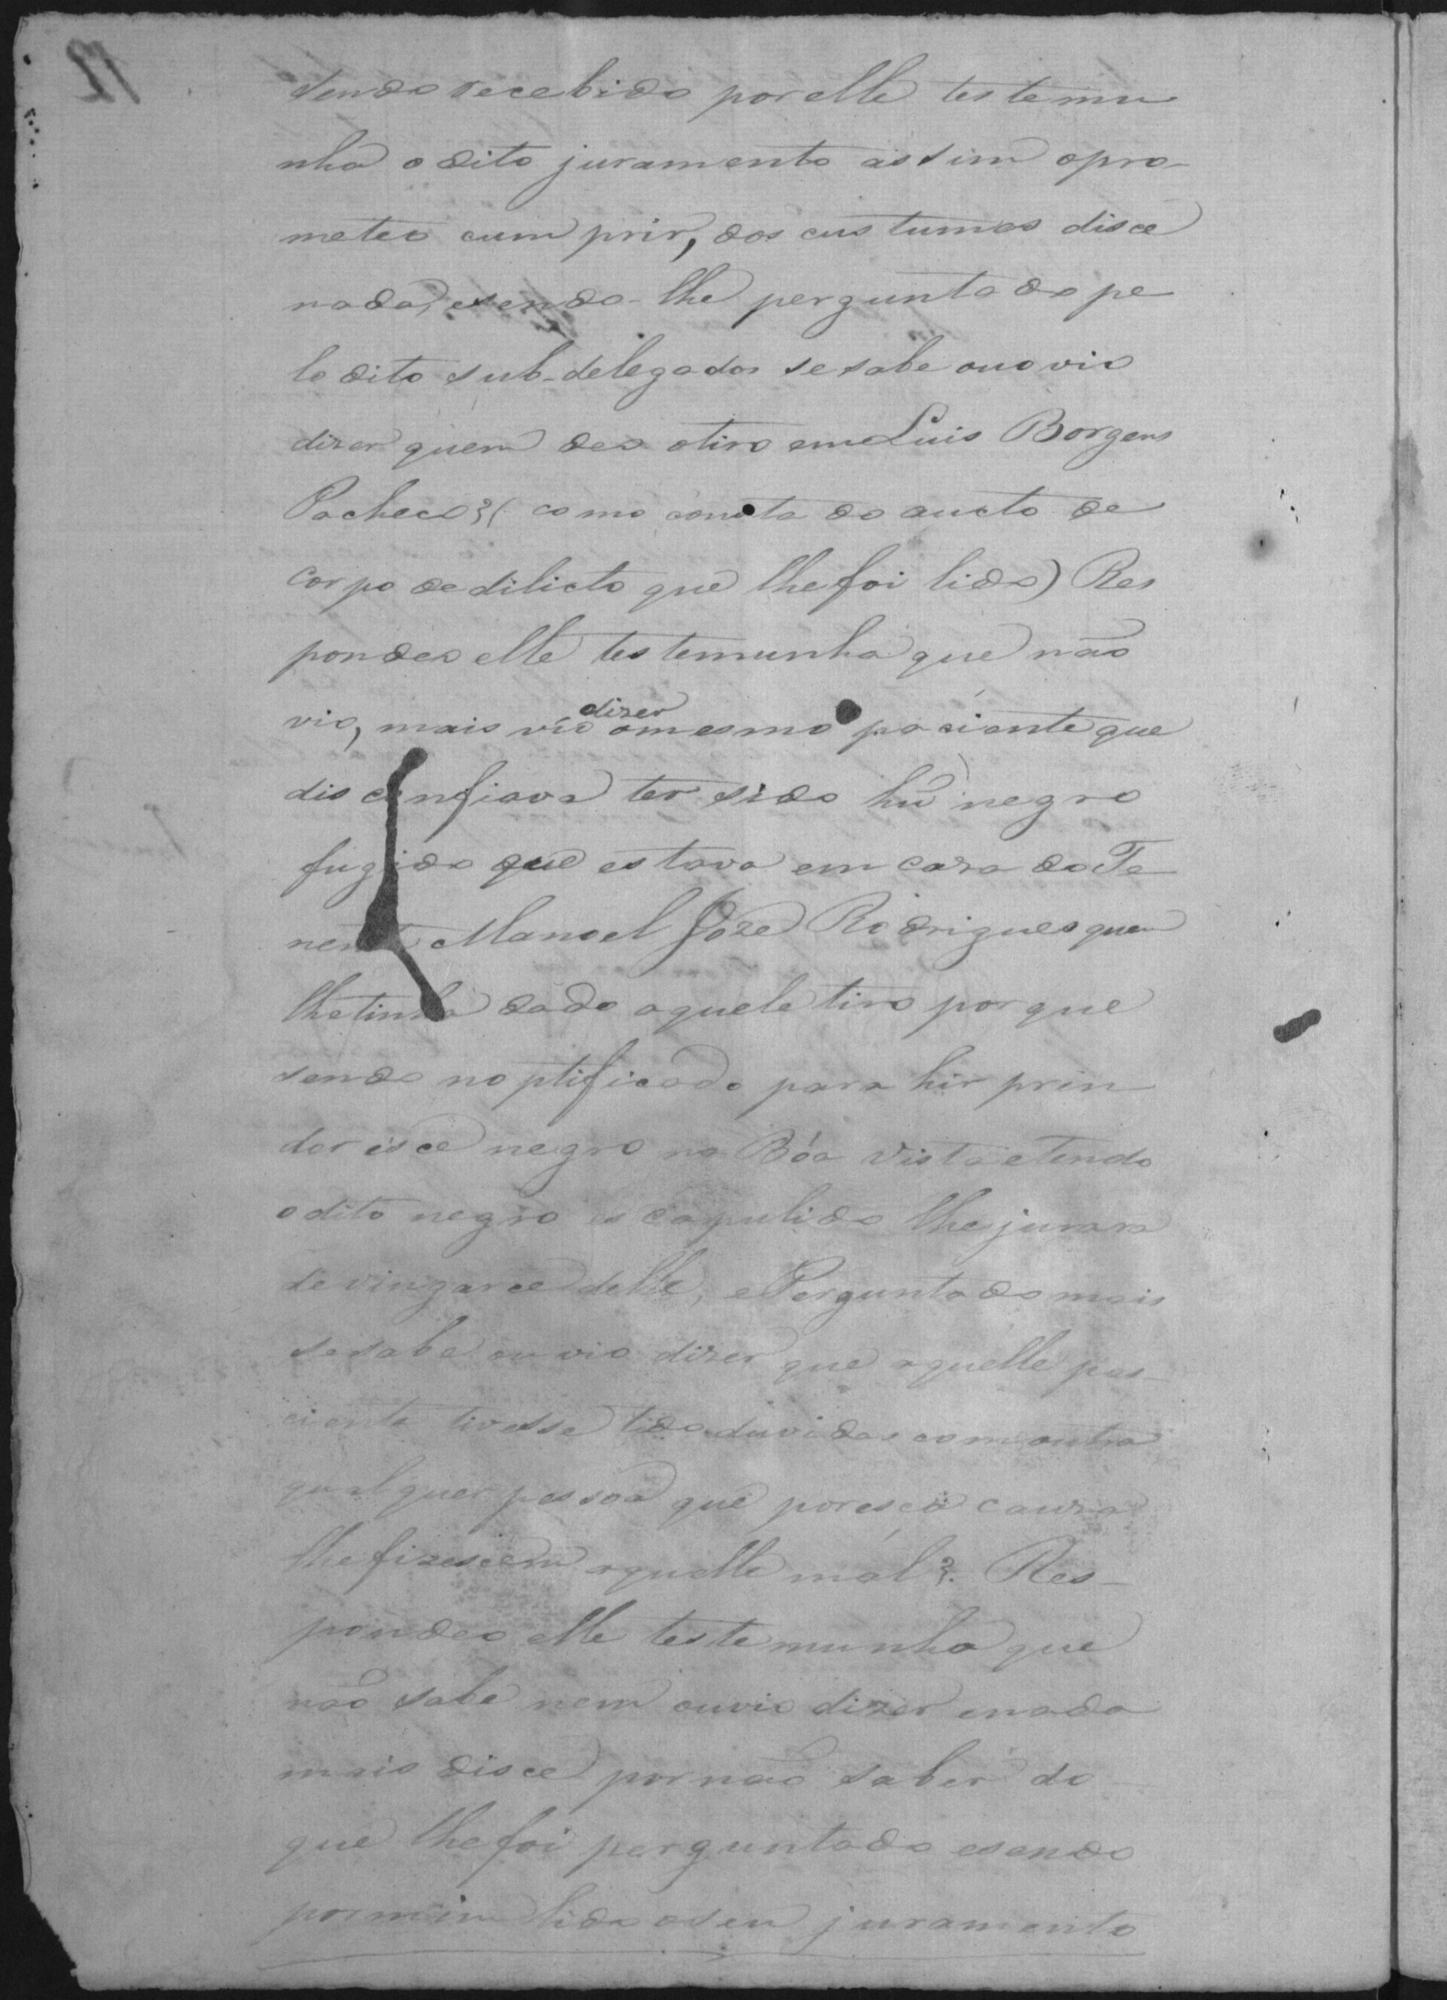 sendo recebido por elle testemu
nha o dito juramento assim o pro-
meteo cumprir, dos custumes disce
nada, esendo-lhe perguntado pe
lo dito sub-delegado se sabe ouovio
dizer quem deo otiro em Luis Borgens
Pacheco?( como consta do aucto de
corpo dedilicto que lhefoi lido) Res
pondeo elle testemunha que não
vio, mais vio dizer omesmo paciente que
disconfiava ter sido hũ negro
fugido que estava em caza do Te
nente Manoel Joze Rodrigues quem
lhetinha dado aquele tiro por que
sendo noptificado para hir prin
der esce negro na Bóa Vista etendo
odito negro escapulido lhe jurara
de vingarce delle, e Perguntado mais
se sabe ou vio dizer que aquelle pas-
ciente tivesse tido duvidas com outra
qualquer pessoa que poresce cauza
lhe fizescem aquelle mál?. Res-
pondeo elle testemunha que
não sabe nem ouvio dizer enada
mais disce por não saber do
que lhe foi perguntado esendo
pormim lido oseu juramento